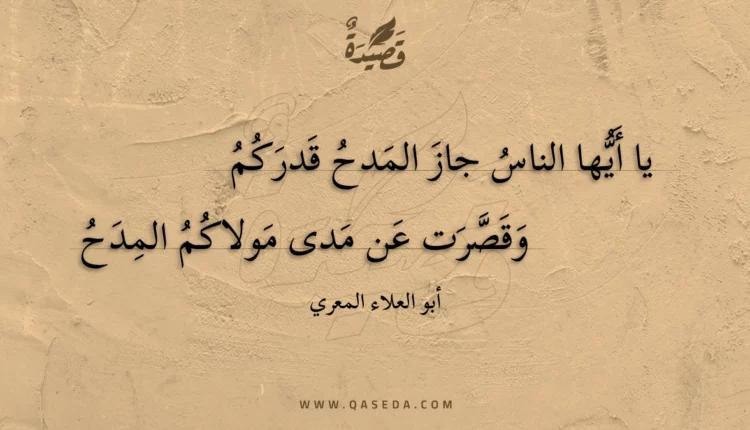 قَصِيْدَةٌ
يا أَيُّها الناسُ جازَ المَدحُ قَدرَكُمُ
وَقَصَّرَت عَن مَدى مَولاكُمُ المِدَحُ
أبو العلاء المعري
WWW.QASEDA.COM